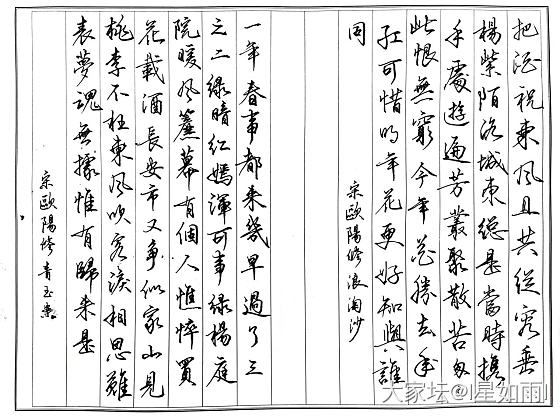 把酒祝東風且共從容垂
楊紫陌洛城東總是當時攜
手處遊遍芳叢聚散苦匆
此恨無窮今年花勝去年
紅可惜明年花更好知與誰
同
宋歐陽修浪淘沙
一年春事都來幾早過了三
之二綠暗紅嫣渾可事綠楊庭
院暖風簾幕有個人憔悴買
花載酒長安市又爭似家山見
桃李不枉東風吹客淚相思難
表夢魂無據惟有歸來是
宋歐陽修青玉案
大家坛@|星如雨|